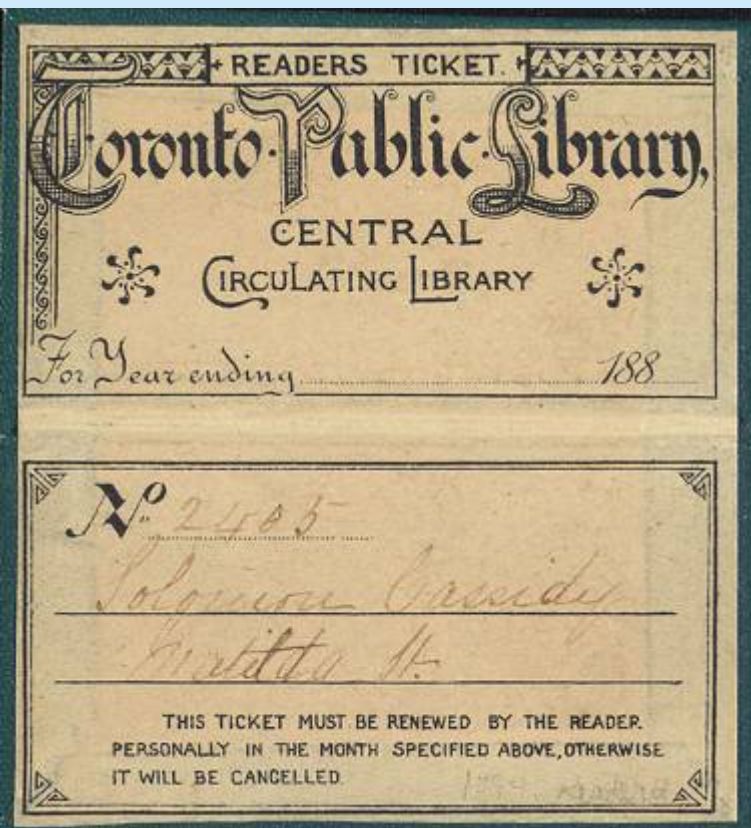 READERS TICKET.
Toronto Public Library,
CENTRAL
CIRCULATING LIBRARY
For Year ending 188
No. 2405
Solomon Cassidy
Matilda St.
THIS TICKET MUST BE RENEWED BY THE READER.
PERSONALLY IN THE MONTH SPECIFIED ABOVE, OTHERWISE
IT WILL BE CANCELLED.